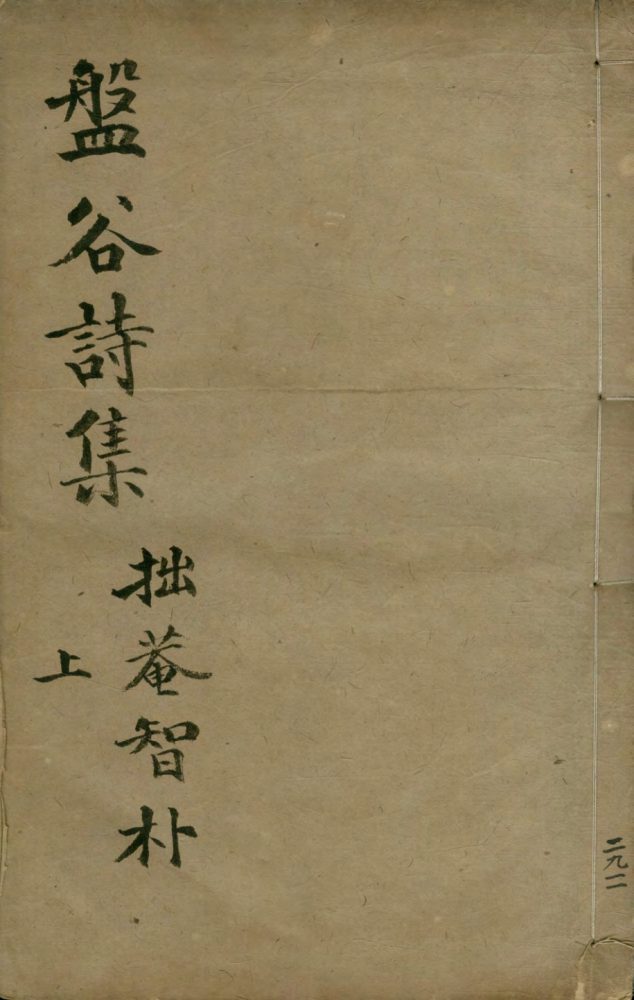 盤谷詩集
拙菴智朴
上
二九一